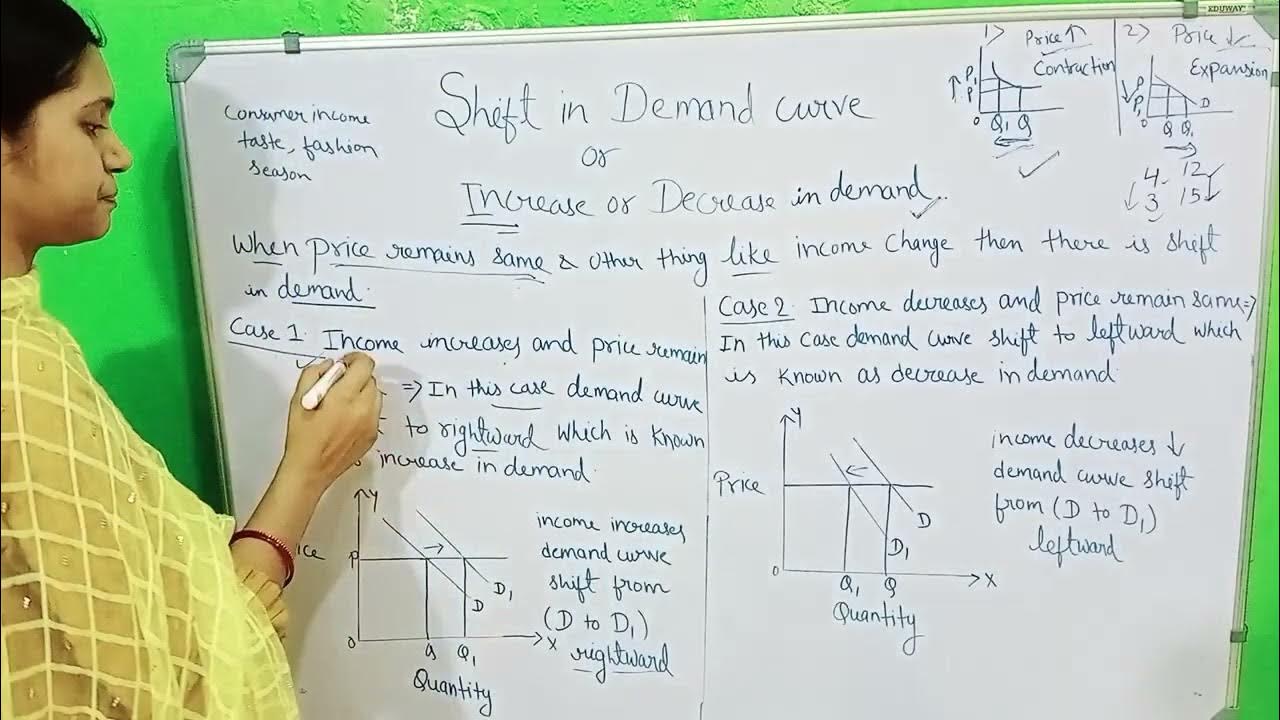 EDUWAY
Consumer income
taste, fashion
season
Shift in Demand curve
or
Increase or Decrease in demand
When price remains same & other thing like income change then there is shift
in demand.
Case 1: Income increases and price remain
=> In this case demand curve
to rightward which is known
increase in demand.
Y
P
O
D1
D
Q Q1
X
Quantity
income increases
demand curve
shift from
(D to D1)
rightward
Case 2: Income decreases and price remain same =>
In this case demand curve shift to leftward which
is known as decrease in demand
Y
Price
D
D1
O
Q1 Q
X
Quantity
income decreases ↓
demand curve shift
from (D to D1)
leftward
1> Price ↑
Contraction
↑ P1
P
O
Q1 Q
←
✓
2> Price ↓
Expansion
↓ P
P1
D
O
Q Q1
→
4 12
↓ 3 15 ↓